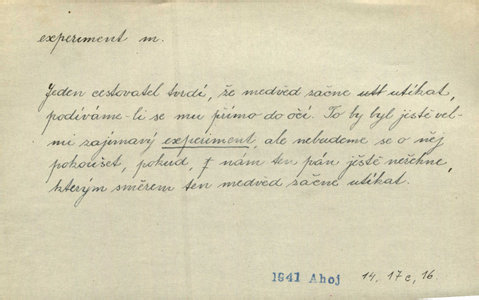 experiment m.
Jeden cestovatel tvrdí, že medvěd začne utt utíkat,
podíváme-li se mu přímo do očí. To by byl jistě vel-
mi zajímavý experiment, ale nebudeme se o něj
pokoušet, pokud, r nám ten pán ještě neřekne,
kterým směrem ten medvěd začne utíkat.
1941 Ahoj 14, 17c, 16.